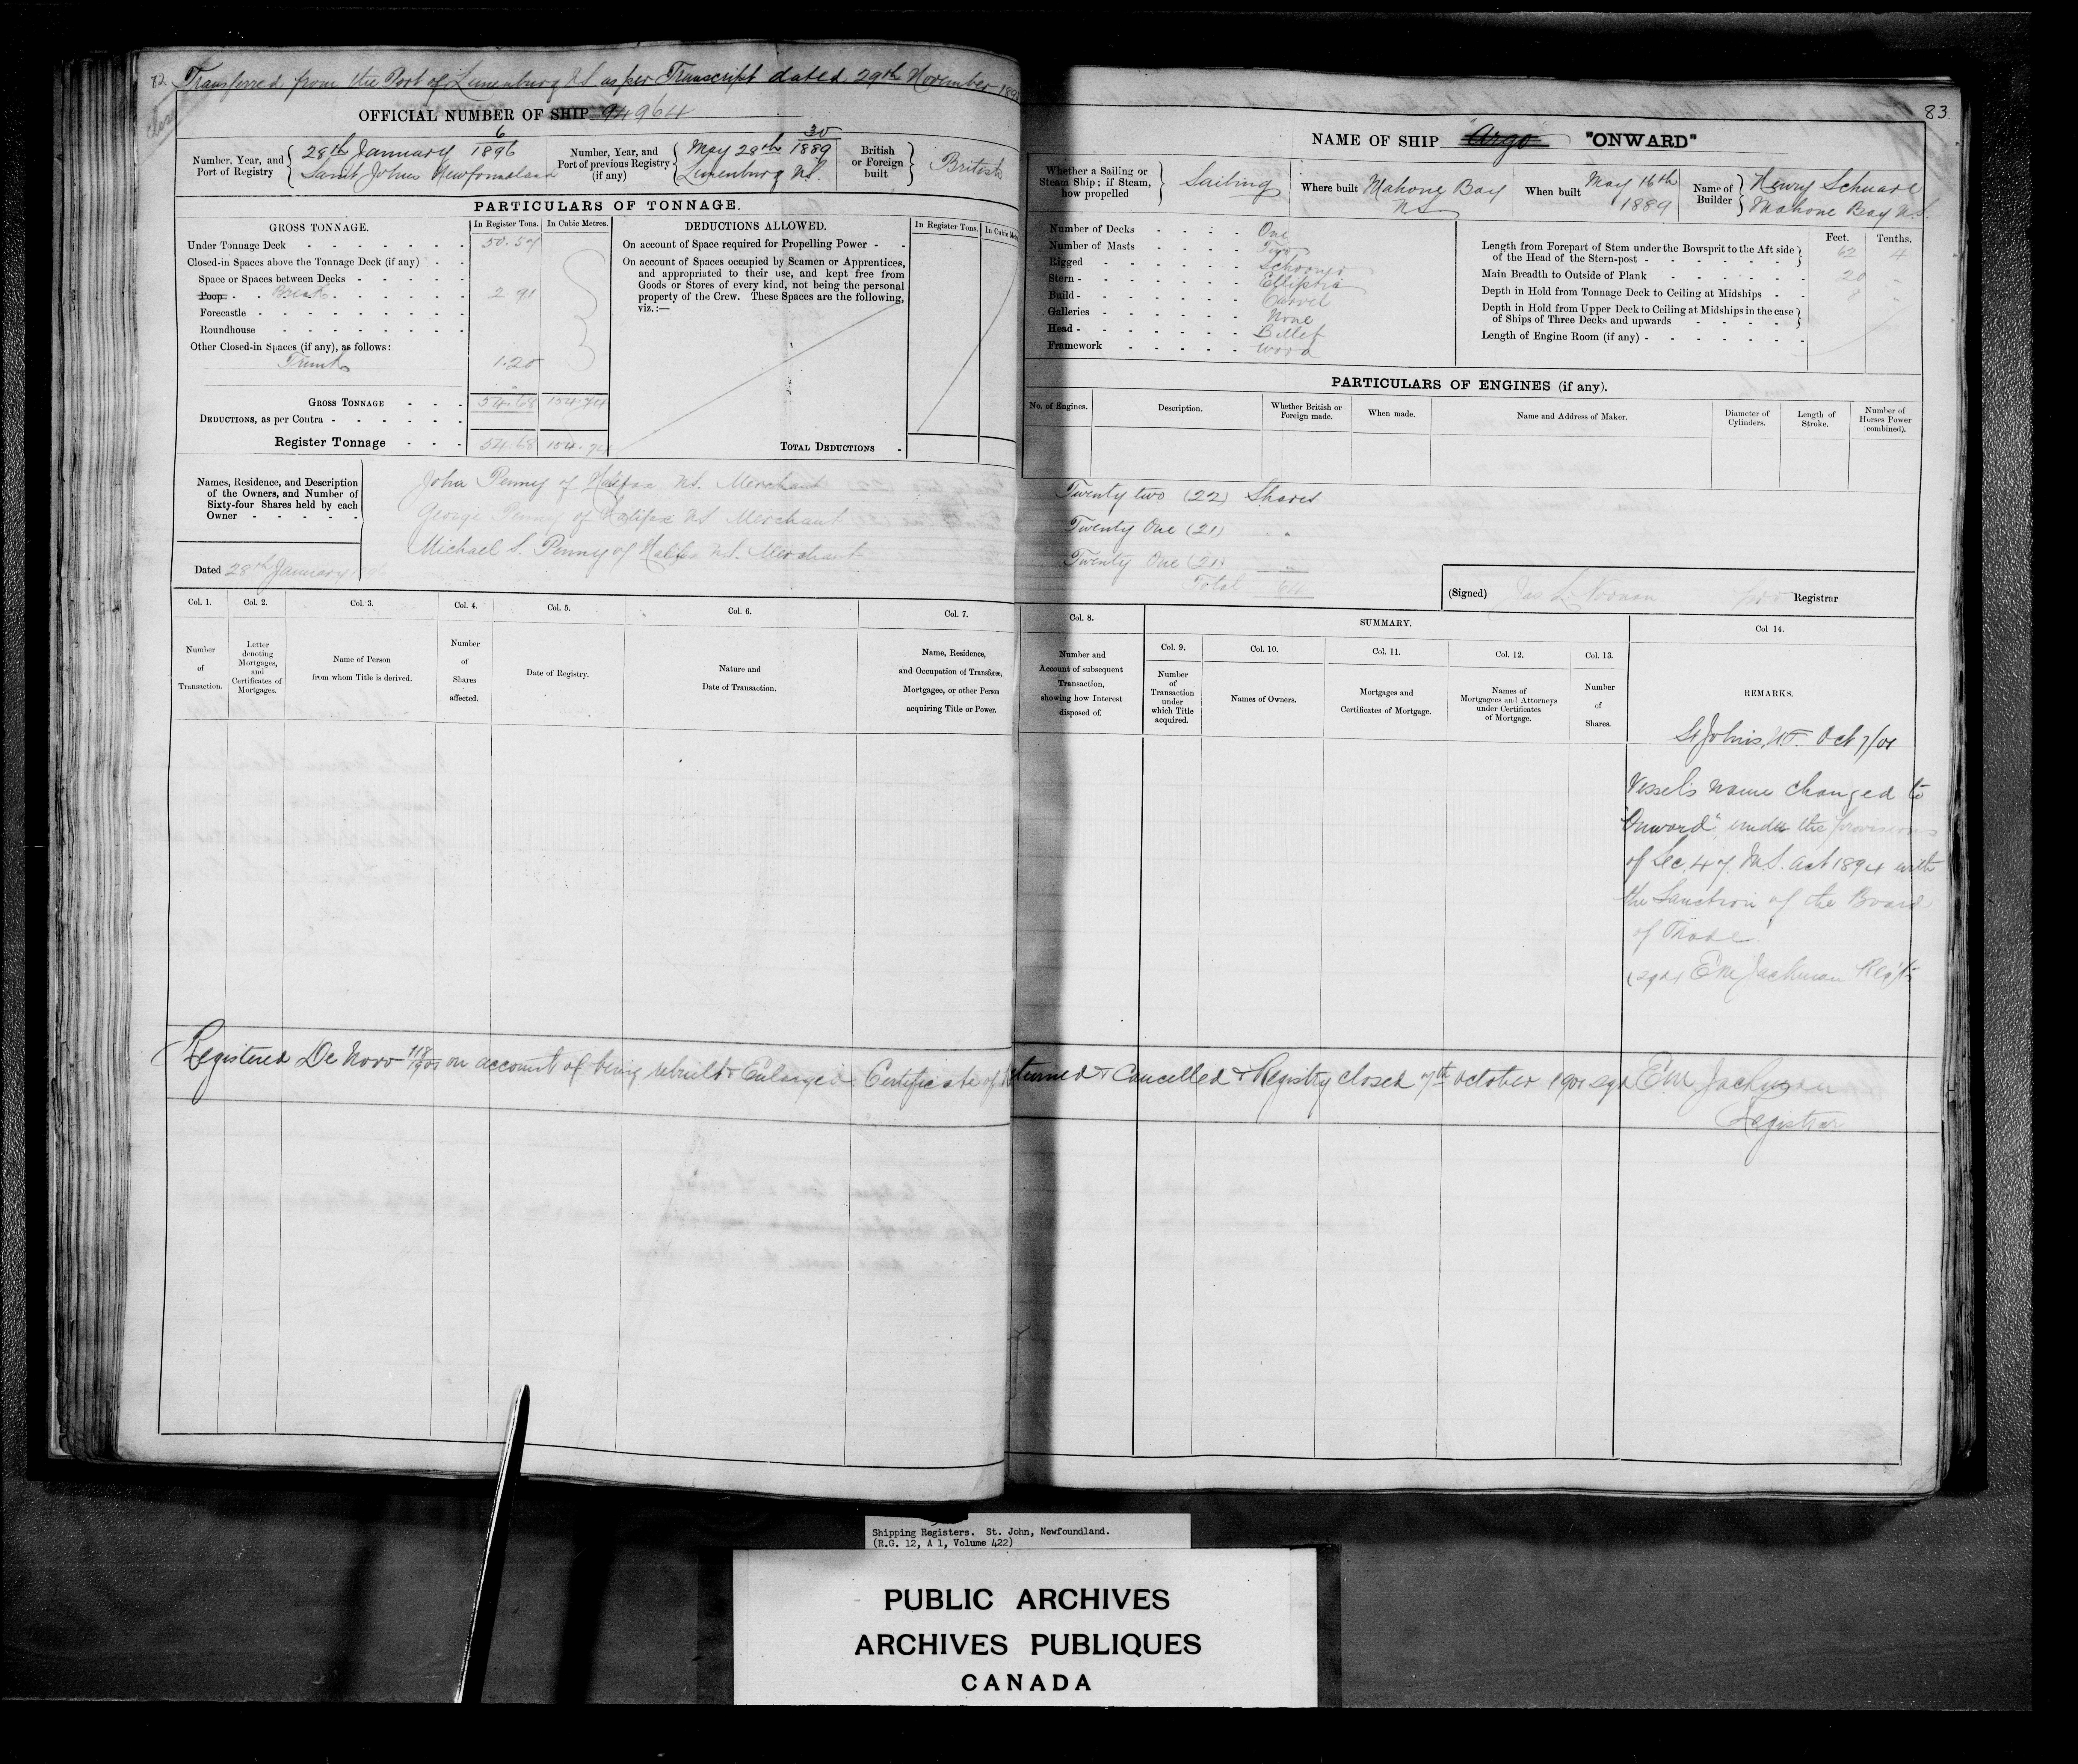 82 Transferred from the Port of Lunenburg N.S. as per Transcript dated 29th November 189
Closed
OFFICIAL NUMBER OF SHIP 94964
Number, Year, and Port of Registry { 28th January 6/1896 Saint Johns Newfoundland
Number, Year, and Port of previous Registry (if any) { May 28th 30/1889 Lunenburg N.S.
British or Foreign built } British
PARTICULARS OF TONNAGE.
GROSS TONNAGE. In Register Tons. In Cubic Metres.
Under Tonnage Deck 50.57
Closed-in Spaces above the Tonnage Deck (if any)
Space or Spaces between Decks
Poop Break 2 91
Forecastle
Roundhouse
Other Closed-in Spaces (if any), as follows:
Trunk 1.20
GROSS TONNAGE 54.68 154.74
DEDUCTIONS, as per Contra
Register Tonnage 54.68 154.74
DEDUCTIONS ALLOWED. In Register Tons. In Cubic
On account of Space required for Propelling Power
On account of Spaces occupied by Seamen or Apprentices,
and appropriated to their use, and kept free from
Goods or Stores of every kind, not being the personal
property of the Crew. These Spaces are the following,
viz.:—
TOTAL DEDUCTIONS
Names, Residence, and Description
of the Owners, and Number of
Sixty-four Shares held by each
Owner
John Penny of Halifax N.S. Merchant
George Penny of Halifax N.S. Merchant
Michael S. Penny of Halifax N.S. Merchant
Dated 28th January
Col. 1. Col. 2. Col. 3. Col. 4. Col. 5. Col. 6. Col. 7.
Number of Transaction.
Letter denoting Mortgages, and Certificates of Mortgages.
Name of Person from whom Title is derived.
Number of Shares affected.
Date of Registry.
Nature and Date of Transaction.
Name, Residence, and Occupation of Transferee, Mortgagee, or other Person acquiring Title or Power.
83
NAME OF SHIP Argo "ONWARD"
Whether a Sailing or Steam Ship; if Steam, how propelled } Sailing
Where built Mahone Bay NS
When built May 16th 1889
Name of Builder } Henry Schnare Mahone Bay N.S.
Number of Decks One
Number of Masts Two
Rigged Schooner
Stern Elliptic
Build Carvel
Galleries None
Head Billet
Framework Wood
Feet. Tenths.
Length from Forepart of Stem under the Bowsprit to the Aft side of the Head of the Stern-post 62 4
Main Breadth to Outside of Plank 20 -
Depth in Hold from Tonnage Deck to Ceiling at Midships 8 -
Depth in Hold from Upper Deck to Ceiling at Midships in the case of Ships of Three Decks and upwards
Length of Engine Room (if any)
PARTICULARS OF ENGINES (if any).
No. of Engines. Description. Whether British or Foreign made. When made. Name and Address of Maker. Diameter of Cylinders. Length of Stroke. Number of Horses Power (combined).
Twenty two (22) Shares
Twenty One (21) " "
Twenty One (21)
Total 64
(Signed) Jas L. Noonan pro Registrar
Col. 8. SUMMARY. Col 14.
Col. 9. Col. 10. Col. 11. Col. 12. Col. 13.
Number and Account of subsequent Transaction, showing how Interest disposed of.
Number of Transaction under which Title acquired.
Names of Owners.
Mortgages and Certificates of Mortgage.
Names of Mortgagees and Attorneys under Certificates of Mortgage.
Number of Shares.
REMARKS.
St Johns, N.F. Oct 7/01
Vessel's name changed to
"Onward", under the provisions
of Sec. 47 M.S. Act 1894 with
the Sanction of the Board
of Trade.
(sgd) E M Jackman Regtr
Registered De Novo 118/1901 on account of being rebuilt & Enlarged. Certificate of returned & Cancelled & Registry closed 7th October 1901 sgd E M Jackman
Registrar
Shipping Registers. St. John, Newfoundland.
(R.G. 12, A 1, Volume 422)
PUBLIC ARCHIVES
ARCHIVES PUBLIQUES
CANADA